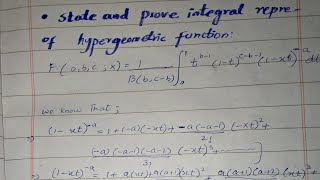 • state and prove integral repre-
of hypergeometric function:
F(a,b,c;x) = 1/β(b,c-b) ∫₀¹ t^{b-1} (1-t)^{c-b-1} (1-xt)^{-a} dt
we know that ;
(1-xt)^{-a} = 1+(-a)(-xt)+ -a(-a-1)/2! (-xt)²+
-a)(-a-1)(-a-2)/3! (-xt)³+ -----
⇒ (1-xt)^{-a} = 1+ a(xt)+ a(a+1)(xt)²+ a(a+1)(a+2)(xt)³+